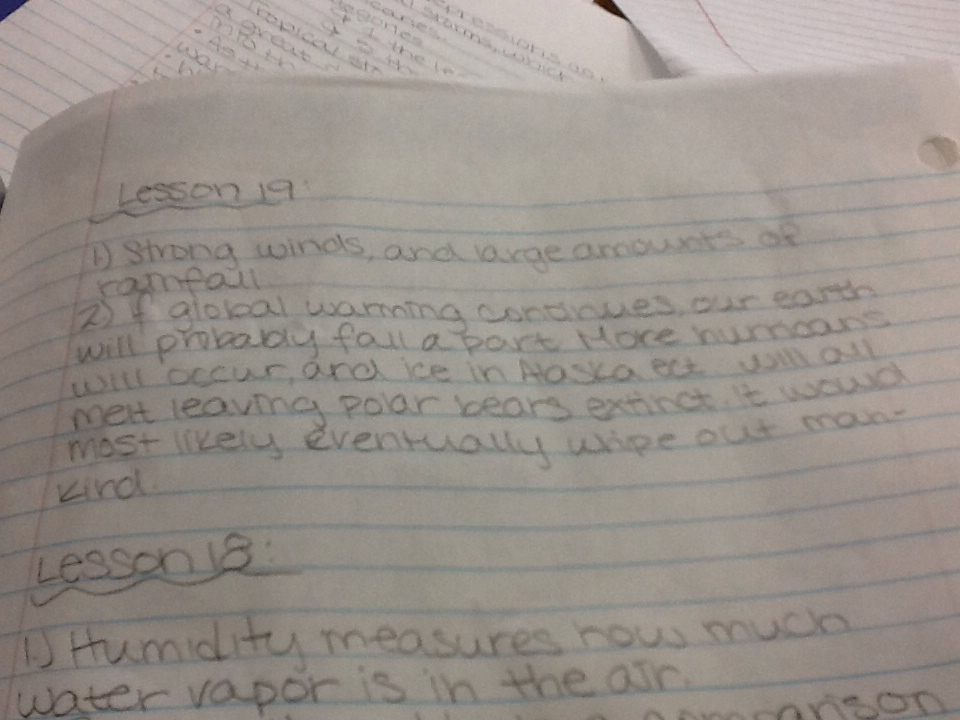 pressions an
storms, which
egories.
of 1 the le
Tropical
a great
Lesson 19:
1) Strong winds, and large amounts of
rainfall
2) If global warming continues, our earth
will probably fall apart. More hurricans
will occur, and ice in Alaska ect. will all
melt leaving polar bears extinct. It would
most likely eventually wipe out man-
kind.
Lesson 18:
1.) Humidity measures how much
water vapor is in the air.
comparison